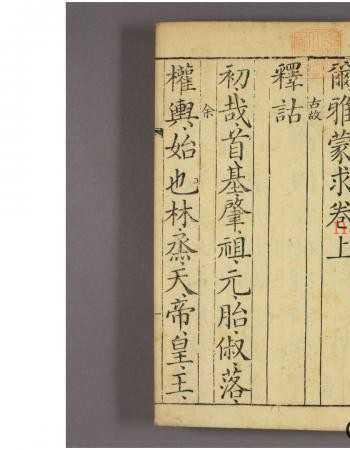 爾雅蒙求卷上
釋詁 古故
初哉、首、基、肇、祖、元、胎、俶、落、
權輿、余 始也林、烝、天、帝、皇、王、